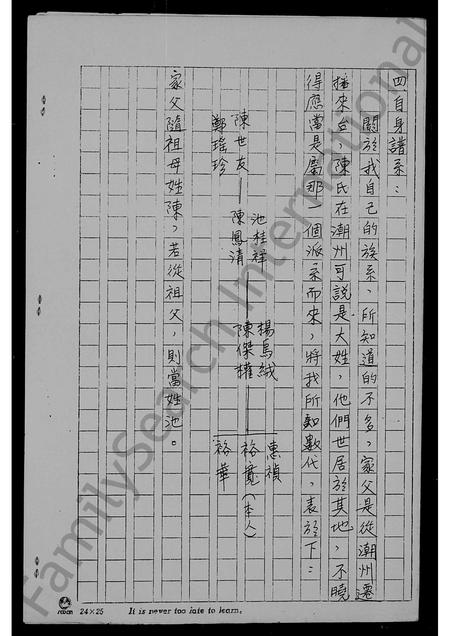 四、自身譜系：
關於我自己的族系，所知道的不多，家父是從潮州遷
播來台，陳氏在潮州可說是大姓，他們世居於其地，不曉
得應當是屬那一個派系而來，將我所知數代，表於下：
池桂祥 楊烏絨 惠禎
陳世友 陳鳳清 陳傑權 裕寬（本人）
鄭瑤珍 裕華
家父隨祖母姓陳，若從祖父，則當姓池。
24×25 It is never too late to learn.
FamilySearch International